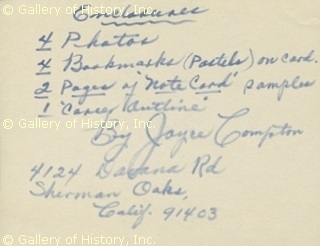 Gallery of History, Inc.
Gallery of History, Inc.
Enclosures
4 Photos
4 Bookmarks (Pastels) on card.
2 Pages of "Note Card" samples
1 "Career Outline"
By Joyce Compton
4124 Davana Rd
Sherman Oaks,
Calif. 91403
Gallery of History, Inc.
Gallery of History, Inc.